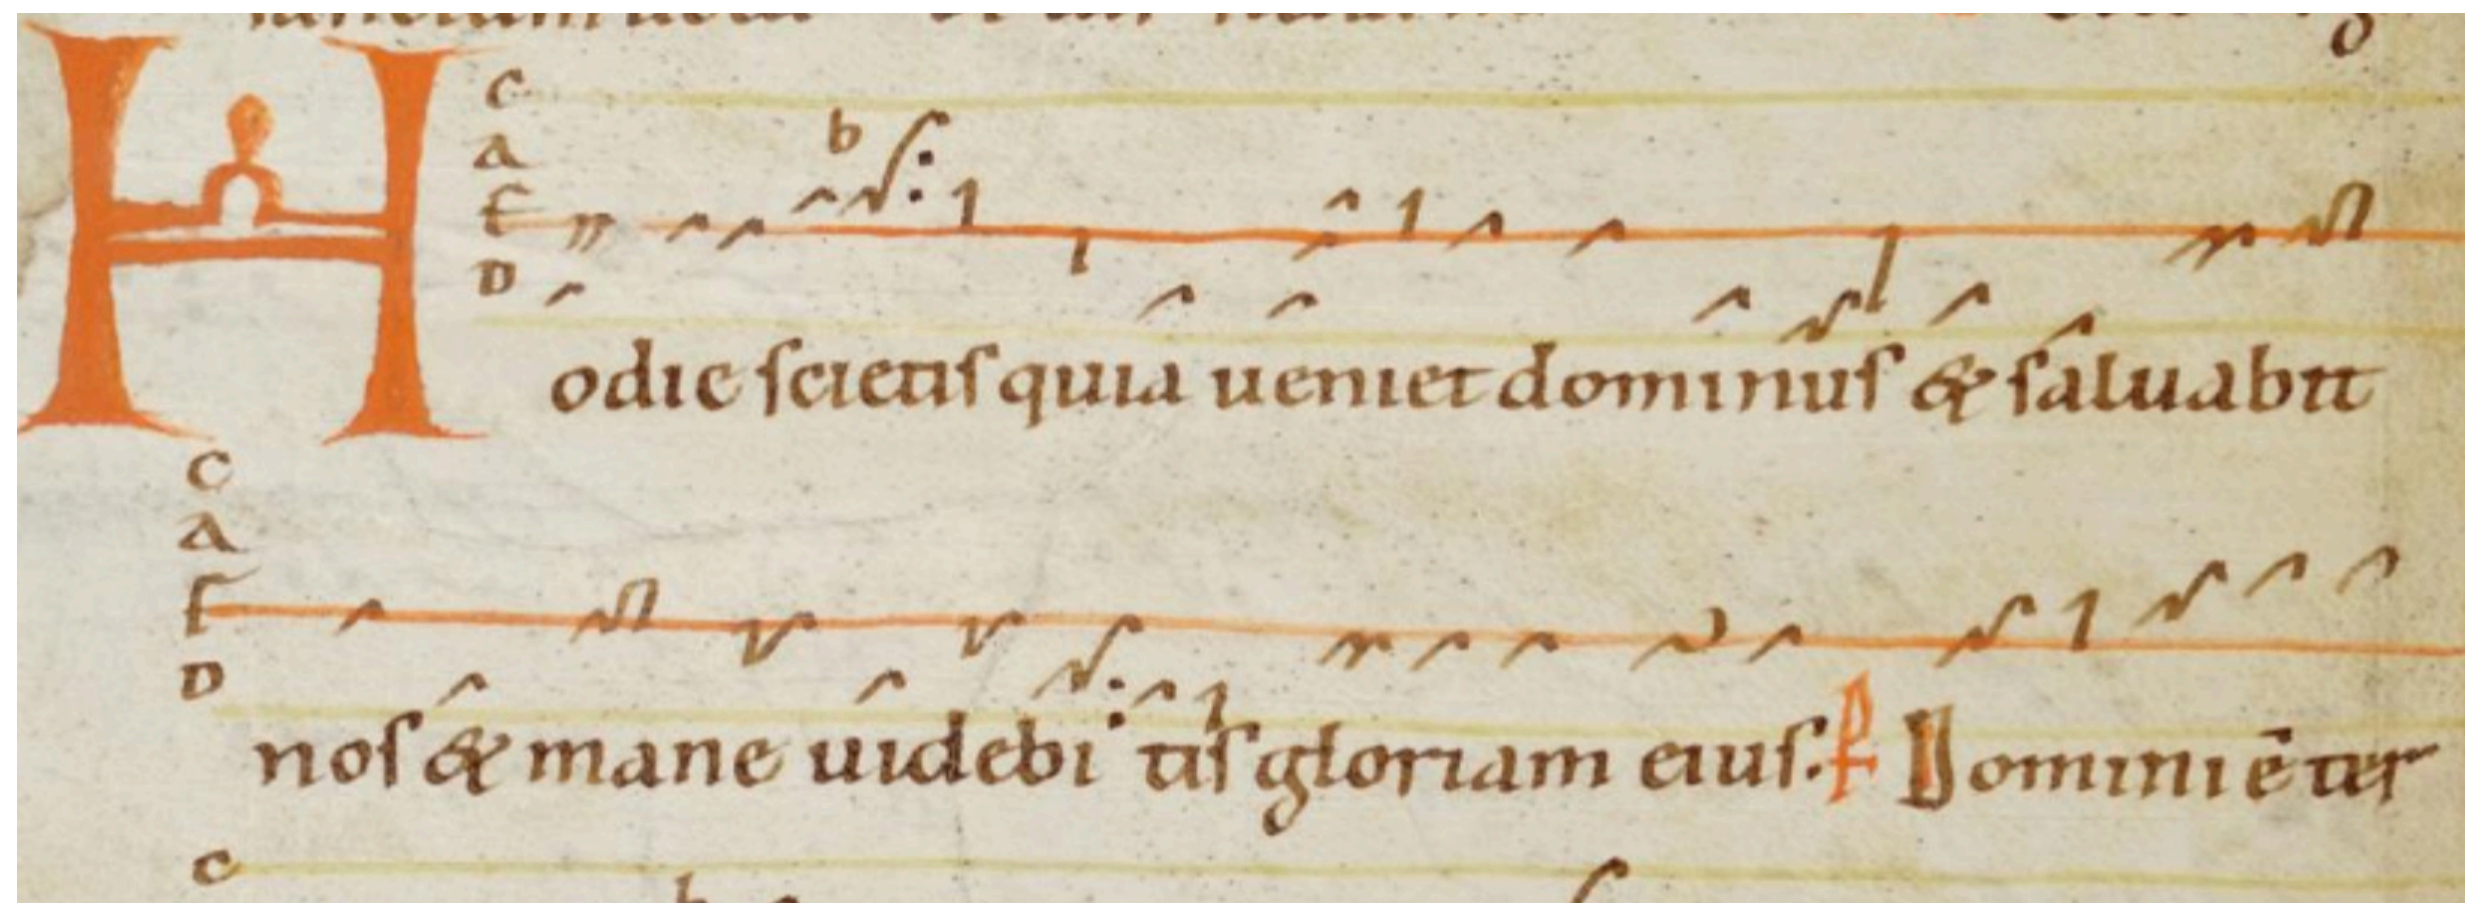 C
a
F
D
b
Hodie scietis quia ueniet dominus & saluabit
C
a
F
D
nos & mane uidebitis gloriam eius. Domini ē ter
C
b